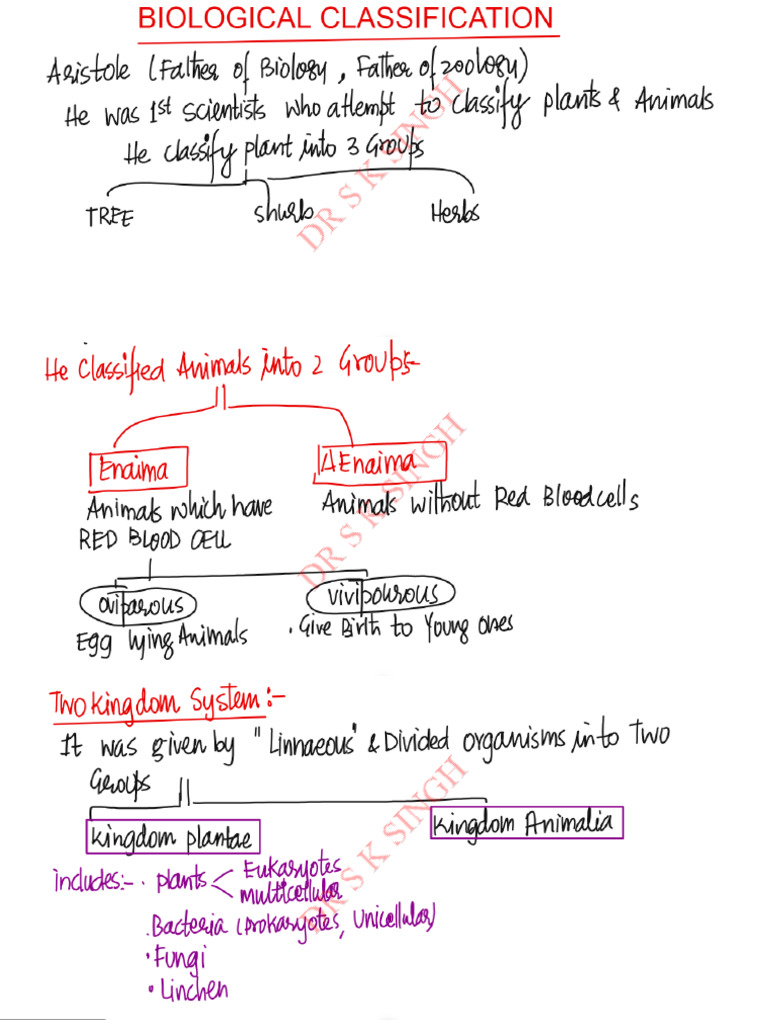 BIOLOGICAL CLASSIFICATION
Aristole (Falther of Biology, Father of zoology)
He was 1st scientists who attempt to classify plants & Animals
He classify plant into 3 Groups
TREE shurb Herbs
He Classified Animals into 2 Groups-
Enaima AEnaima
Animals which have Animals without Red Blood cells
RED BLOOD CELL
oviparous vivipourous
Egg lying Animals . Give Birth to Young ones
Two kingdom System:-
It was given by "Linnaeous" & Divided organisms into Two
Groups
kingdom plantae kingdom Animalia
includes:- . plants < Eukaryotes
multicellular
. Bacteria (prokaryotes, Unicellular)
• Fungi
• Linchen
DR S K SINGH
DR S K SINGH
DR S K SINGH